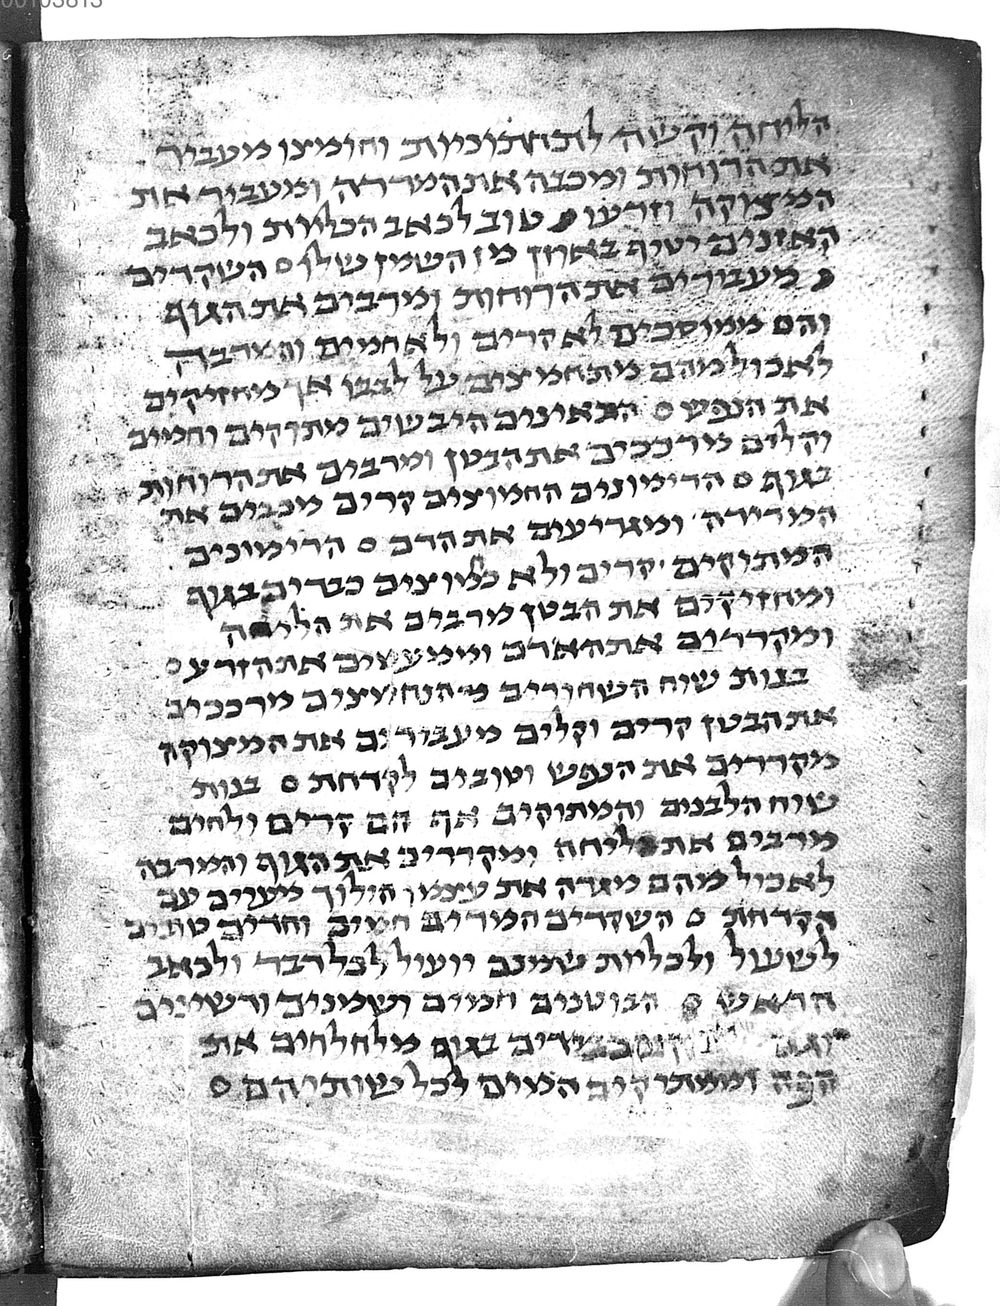 00103813
הליחה וקשה לתחתוניות וחומצו מעביר
את הרוחות ומכבה את המררה ומעביר את
המצוקה וזרעו טוב לכאב הכליות ולכאב
האזנים יטיף באוזן מן השמן שלו ο השקדים
מעבירים את הרוחות ומרבים את הגוף
והם ממוסכים לא קרים ולא חמים והמרבה
לאכול מהם מתחמיצים על לבבו אך מחזיקים
את הנפש ο התאינים היבשים מתוקים וחמים
וקלים מרככים את הבטן ומרבים את הרוחות
בגוף ο הרימונים החמוצים קרים מכבים את
המרירה ומגריעים את הדם ο הרימונים
המתוקים קרים ולא כחמוצים כבדים בגוף
ומחזיקים את הבטן מרבים את הליחה
ומקררים את האדם וממעטים את הזרע ο
בנות שוח השחורים מהנחמצים מרככים
את הבטן קרים וקלים מעבירים את המצוקה
מקררים את הנפש וטובים לקדחת ο בנות
שוח הלבנים והמתוקים אף הם קרים ולחים
מרבים את הליחה ומקררים את הגוף והמרבה
לאכול מהם מגרה את עצמו הילוך מעיים עם
הקדחת ο השקדים המרים חמים וחדים טובים
לשעול ולכליות שמנם יועיל לכל דבר ולכאב
הראש ο הבוטנים חמים ושמנים ודשינים
בגוף מלחלחים את
הפה וממתיקים המים לכל שותיהם ο